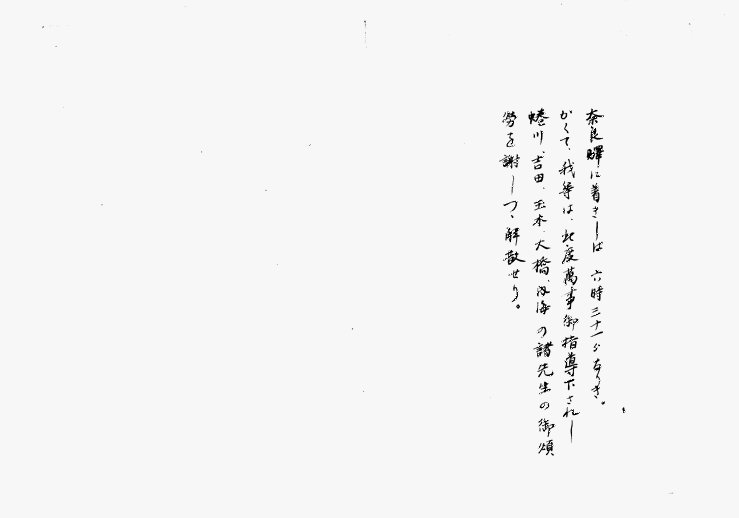 奈良驛に着きしは 六時三十一分なりき。
かくて、我等は、此度萬事御指導下されし
蜷川、吉田、玉木、大橋、海の諸先生の御煩
勞を謝しつゝ解散せり。